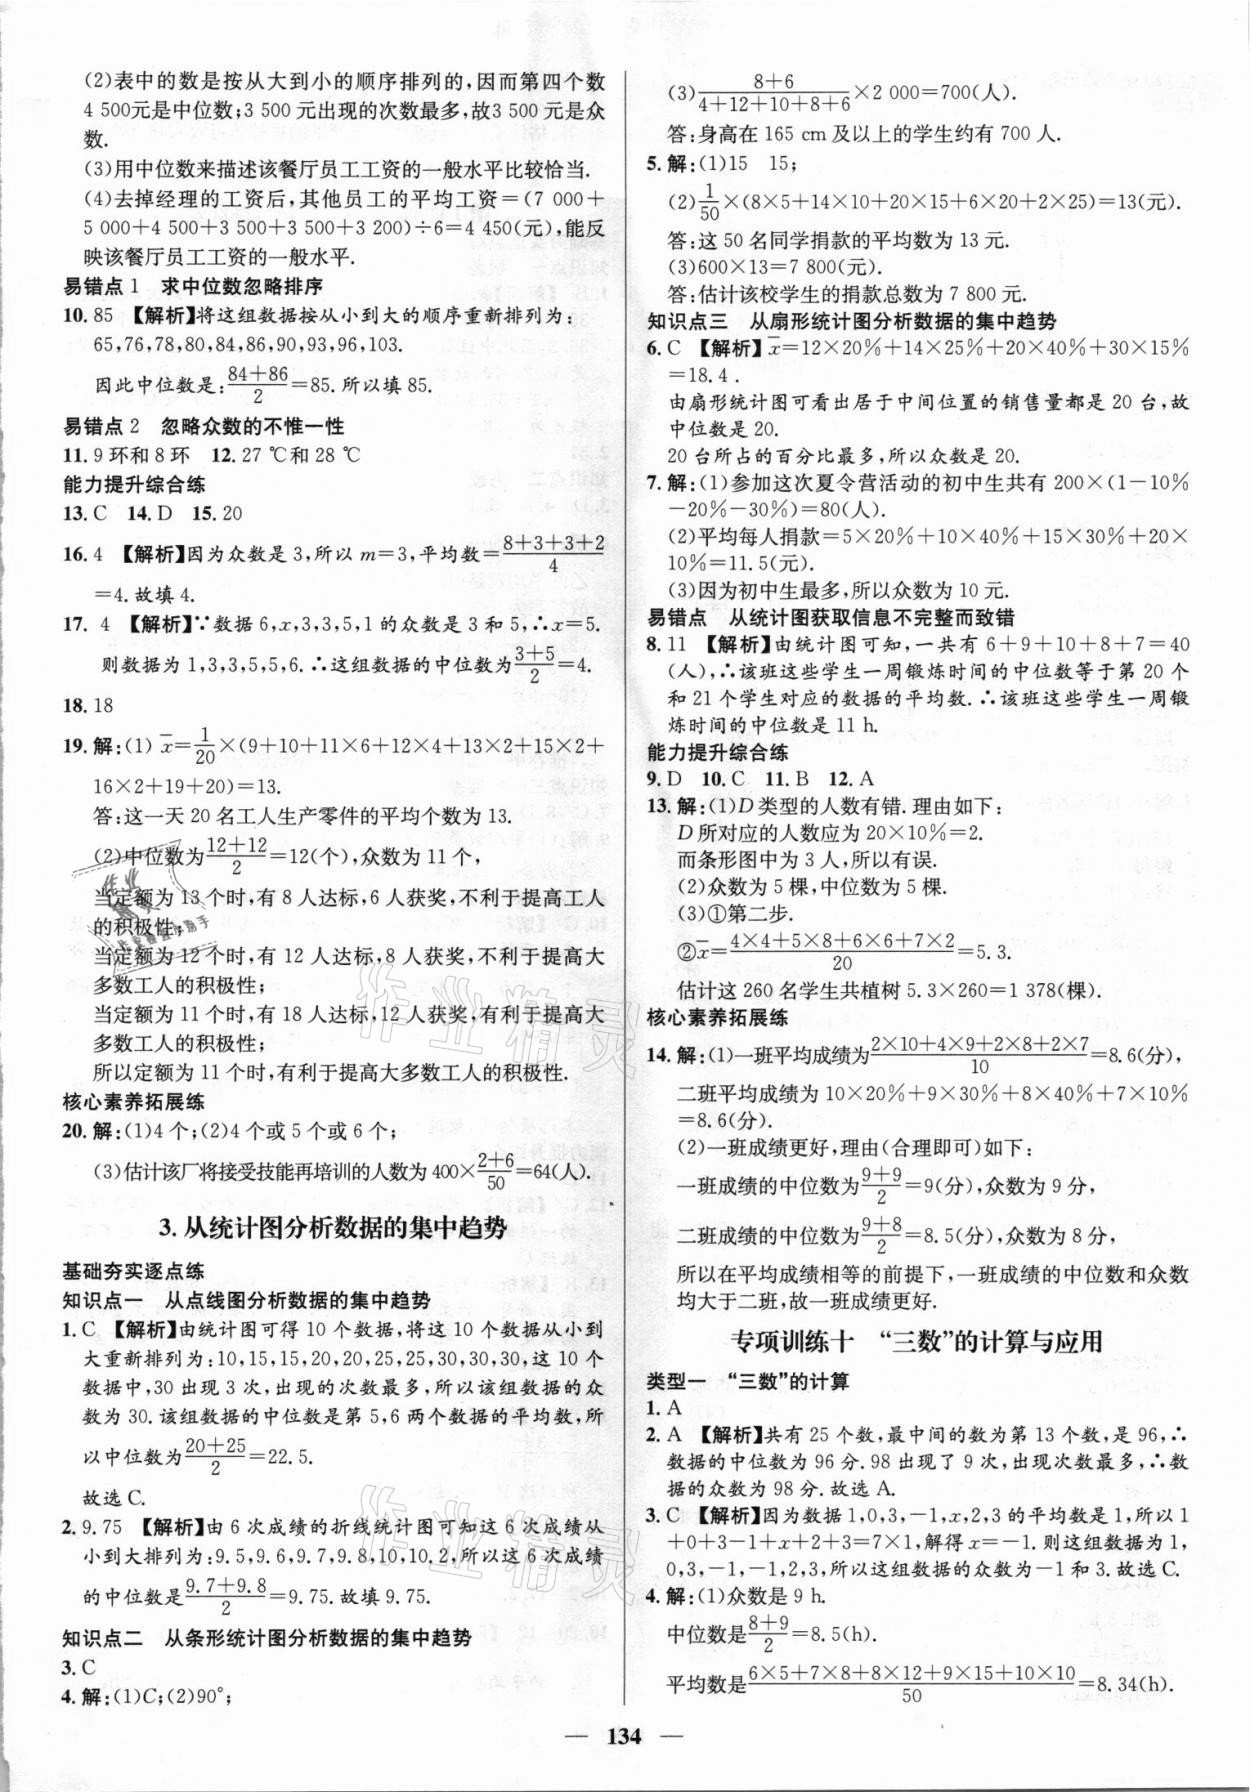 (2)表中的数是按从大到小的顺序排列的,因而第四个数
4 500元是中位数;3 500元出现的次数最多,故3 500元是众
数.
(3)用中位数来描述该餐厅员工工资的一般水平比较恰当.
(4)去掉经理的工资后,其他员工的平均工资=(7 000+
5 000+4 500+3 500+3 500+3 200)÷6=4 450(元),能反
映该餐厅员工工资的一般水平.
易错点 1 求中位数忽略排序
10. 85 【解析】将这组数据按从小到大的顺序重新排列为:
65,76,78,80,84,86,90,93,96,103.
因此中位数是:(84+86)/2=85. 所以填 85.
易错点 2 忽略众数的不惟一性
11. 9 环和 8 环 12. 27 ℃和 28 ℃
能力提升综合练
13. C 14. D 15. 20
16. 4 【解析】因为众数是 3,所以 m=3,平均数=(8+3+3+2)/4
=4. 故填 4.
17. 4 【解析】∵数据 6,x,3,3,5,1 的众数是 3 和 5,∴x=5.
则数据为 1,3,3,5,5,6. ∴这组数据的中位数为(3+5)/2=4.
18. 18
19. 解:(1) x̄=1/20×(9+10+11×6+12×4+13×2+15×2+
16×2+19+20)=13.
答:这一天 20 名工人生产零件的平均个数为 13.
(2)中位数为(12+12)/2=12(个),众数为 11 个,
当定额为 13 个时,有 8 人达标,6 人获奖,不利于提高工人
的积极性;
当定额为 12 个时,有 12 人达标,8 人获奖,不利于提高大
多数工人的积极性;
当定额为 11 个时,有 18 人达标,12 人获奖,有利于提高大
多数工人的积极性;
所以定额为 11 个时,有利于提高大多数工人的积极性.
核心素养拓展练
20. 解:(1)4 个;(2)4 个或 5 个或 6 个;
(3)估计该厂将接受技能再培训的人数为 400×(2+6)/50=64(人).
3. 从统计图分析数据的集中趋势
基础夯实逐点练
知识点一 从点线图分析数据的集中趋势
1. C 【解析】由统计图可得 10 个数据,将这 10 个数据从小到
大重新排列为:10,15,15,20,20,25,25,30,30,30,这 10 个
数据中,30 出现 3 次,出现的次数最多,所以该组数据的众
数为 30. 该组数据的中位数是第 5,6 两个数据的平均数,所
以中位数为(20+25)/2=22.5.
故选 C.
2. 9.75 【解析】由 6 次成绩的折线统计图可知这 6 次成绩从
小到大排列为:9.5,9.6,9.7,9.8,10,10.2,所以这 6 次成绩
的中位数为(9.7+9.8)/2=9.75. 故填 9.75.
知识点二 从条形统计图分析数据的集中趋势
3. C
4. 解:(1)C;(2)90°;
(3)(8+6)/(4+12+10+8+6)×2 000=700(人).
答:身高在 165 cm 及以上的学生约有 700 人.
5. 解:(1)15 15;
(2)1/50×(8×5+14×10+20×15+6×20+2×25)=13(元).
答:这 50 名同学捐款的平均数为 13 元.
(3)600×13=7 800(元).
答:估计该校学生的捐款总数为 7 800 元.
知识点三 从扇形统计图分析数据的集中趋势
6. C 【解析】x̄=12×20%+14×25%+20×40%+30×15%
=18.4.
由扇形统计图可看出居于中间位置的销售量都是 20 台,故
中位数是 20.
20 台所占的百分比最多,所以众数是 20.
7. 解:(1)参加这次夏令营活动的初中生共有 200×(1-10%
-20%-30%)=80(人).
(2)平均每人捐款=5×20%+10×40%+15×30%+20×
10%=11.5(元).
(3)因为初中生最多,所以众数为 10 元.
易错点 从统计图获取信息不完整而致错
8. 11 【解析】由统计图可知,一共有 6+9+10+8+7=40
(人),∴该班这些学生一周锻炼时间的中位数等于第 20 个
和 21 个学生对应的数据的平均数. ∴该班这些学生一周锻
炼时间的中位数是 11 h.
能力提升综合练
9. D 10. C 11. B 12. A
13. 解:(1)D 类型的人数有错. 理由如下:
D 所对应的人数应为 20×10%=2.
而条形图中为 3 人,所以有误.
(2)众数为 5 棵,中位数为 5 棵.
(3)①第二步.
②x̄=(4×4+5×8+6×6+7×2)/20=5.3.
估计这 260 名学生共植树 5.3×260=1 378(棵).
核心素养拓展练
14. 解:(1)一班平均成绩为(2×10+4×9+2×8+2×7)/10=8.6(分),
二班平均成绩为 10×20%+9×30%+8×40%+7×10%
=8.6(分).
(2)一班成绩更好,理由(合理即可)如下:
一班成绩的中位数为(9+9)/2=9(分),众数为 9 分,
二班成绩的中位数为(9+8)/2=8.5(分),众数为 8 分.
所以在平均成绩相等的前提下,一班成绩的中位数和众数
均大于二班,故一班成绩更好.
专项训练十 “三数”的计算与应用
类型一 “三数”的计算
1. A
2. A 【解析】共有 25 个数,最中间的数为第 13 个数,是 96,∴
数据的中位数为 96 分. 98 出现了 9 次,出现次数最多,∴数
据的众数为 98 分. 故选 A.
3. C 【解析】因为数据 1,0,3,-1,x,2,3 的平均数是 1,所以 1
+0+3-1+x+2+3=7×1,解得 x=-1. 则这组数据为 1,
0,3,-1,-1,2,3,所以这组数据的众数为-1 和 3. 故选 C.
4. 解:(1)众数是 9 h.
中位数是(8+9)/2=8.5(h).
平均数是(6×5+7×8+8×12+9×15+10×10)/50=8.34(h).
— 134 —
作业精灵
作业精灵